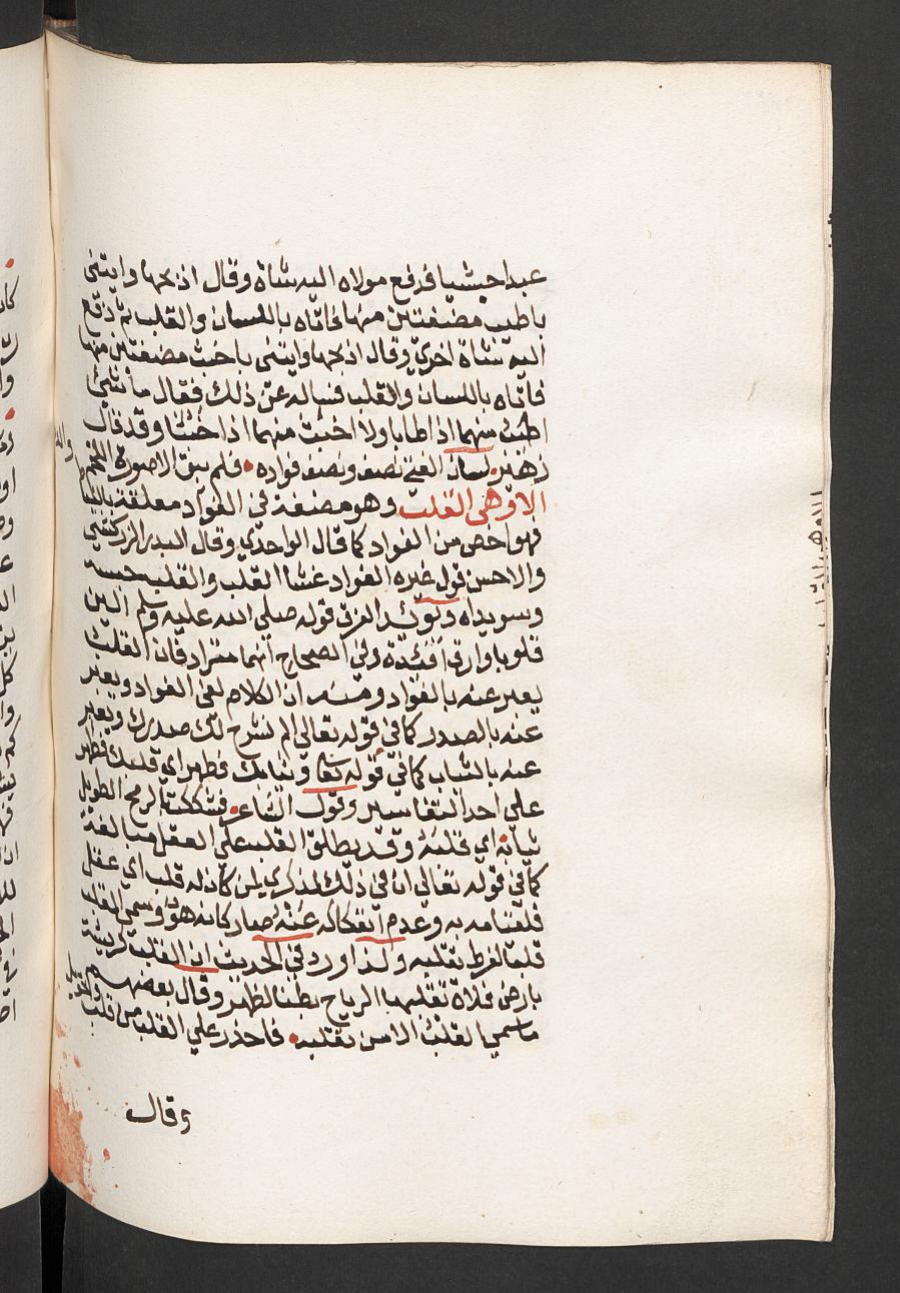 عبدا حبشيا فدفع مولاه اليه شاة وقال اذبحها وايتنى
باطيب مضغتين منها فاتاه باللسان والقلب ثم دفع
اليه شاة اخري وقال اذبحها وايتنى باخبث مضغتين منها
فاتاه باللسان والقلب فساله عن ذلك فقال ما شئ
اطيب منهما اذا طابا ولا اخبث منهما اذا خبثا وقد قال
زهير لسان الفتى نصف ونصف فواده فلم يبق الا صورة اللحم والدم
الا وهي القلب وهو مضغة في الفواد معلقة بالنياط
فهو اخص من الفواد كما قال الواحدي وقال البدر الزركشي
والاحسن قول غيره الفواد غشا القلب والقلب حبته
وسويداه ويؤيد الفرق قوله صلي الله عليه وسلم الين
قلوبا وارق افئدة وفي الصحاح انهما مترادفان القلب
يعبر عنه بالفواد ومنه ان الكلام لفى الفواد ويعبر
عنه بالصدر كما في قوله تعالي الم نشرح لك صدرك ويعبر
عنه بالثياب كما في قوله تعا وثيابك فطهر اي قلبك فطهر
علي احد التفاسير وقول الشاعر فشككت بالرمح الطويل
ثيابه اي قلبه وقد يطلق القلب علي العقل مبالغة
كما في قوله تعالي ان في ذلك لذكري لمن كان له قلب اي عقل
فلقيامه به وعدم انفكاكه عنه صار كانه هو وسمي القلب
قلبا لفرط تقلبه ولذا ورد في الحديث ان القلب كريشة
بارض فلاة تقلبها الرياح بطنا لظهر وقال بعضهم
ما سمي القلب الا من تقلبه فاحذر علي القلب من قلب وتحويل
وقال